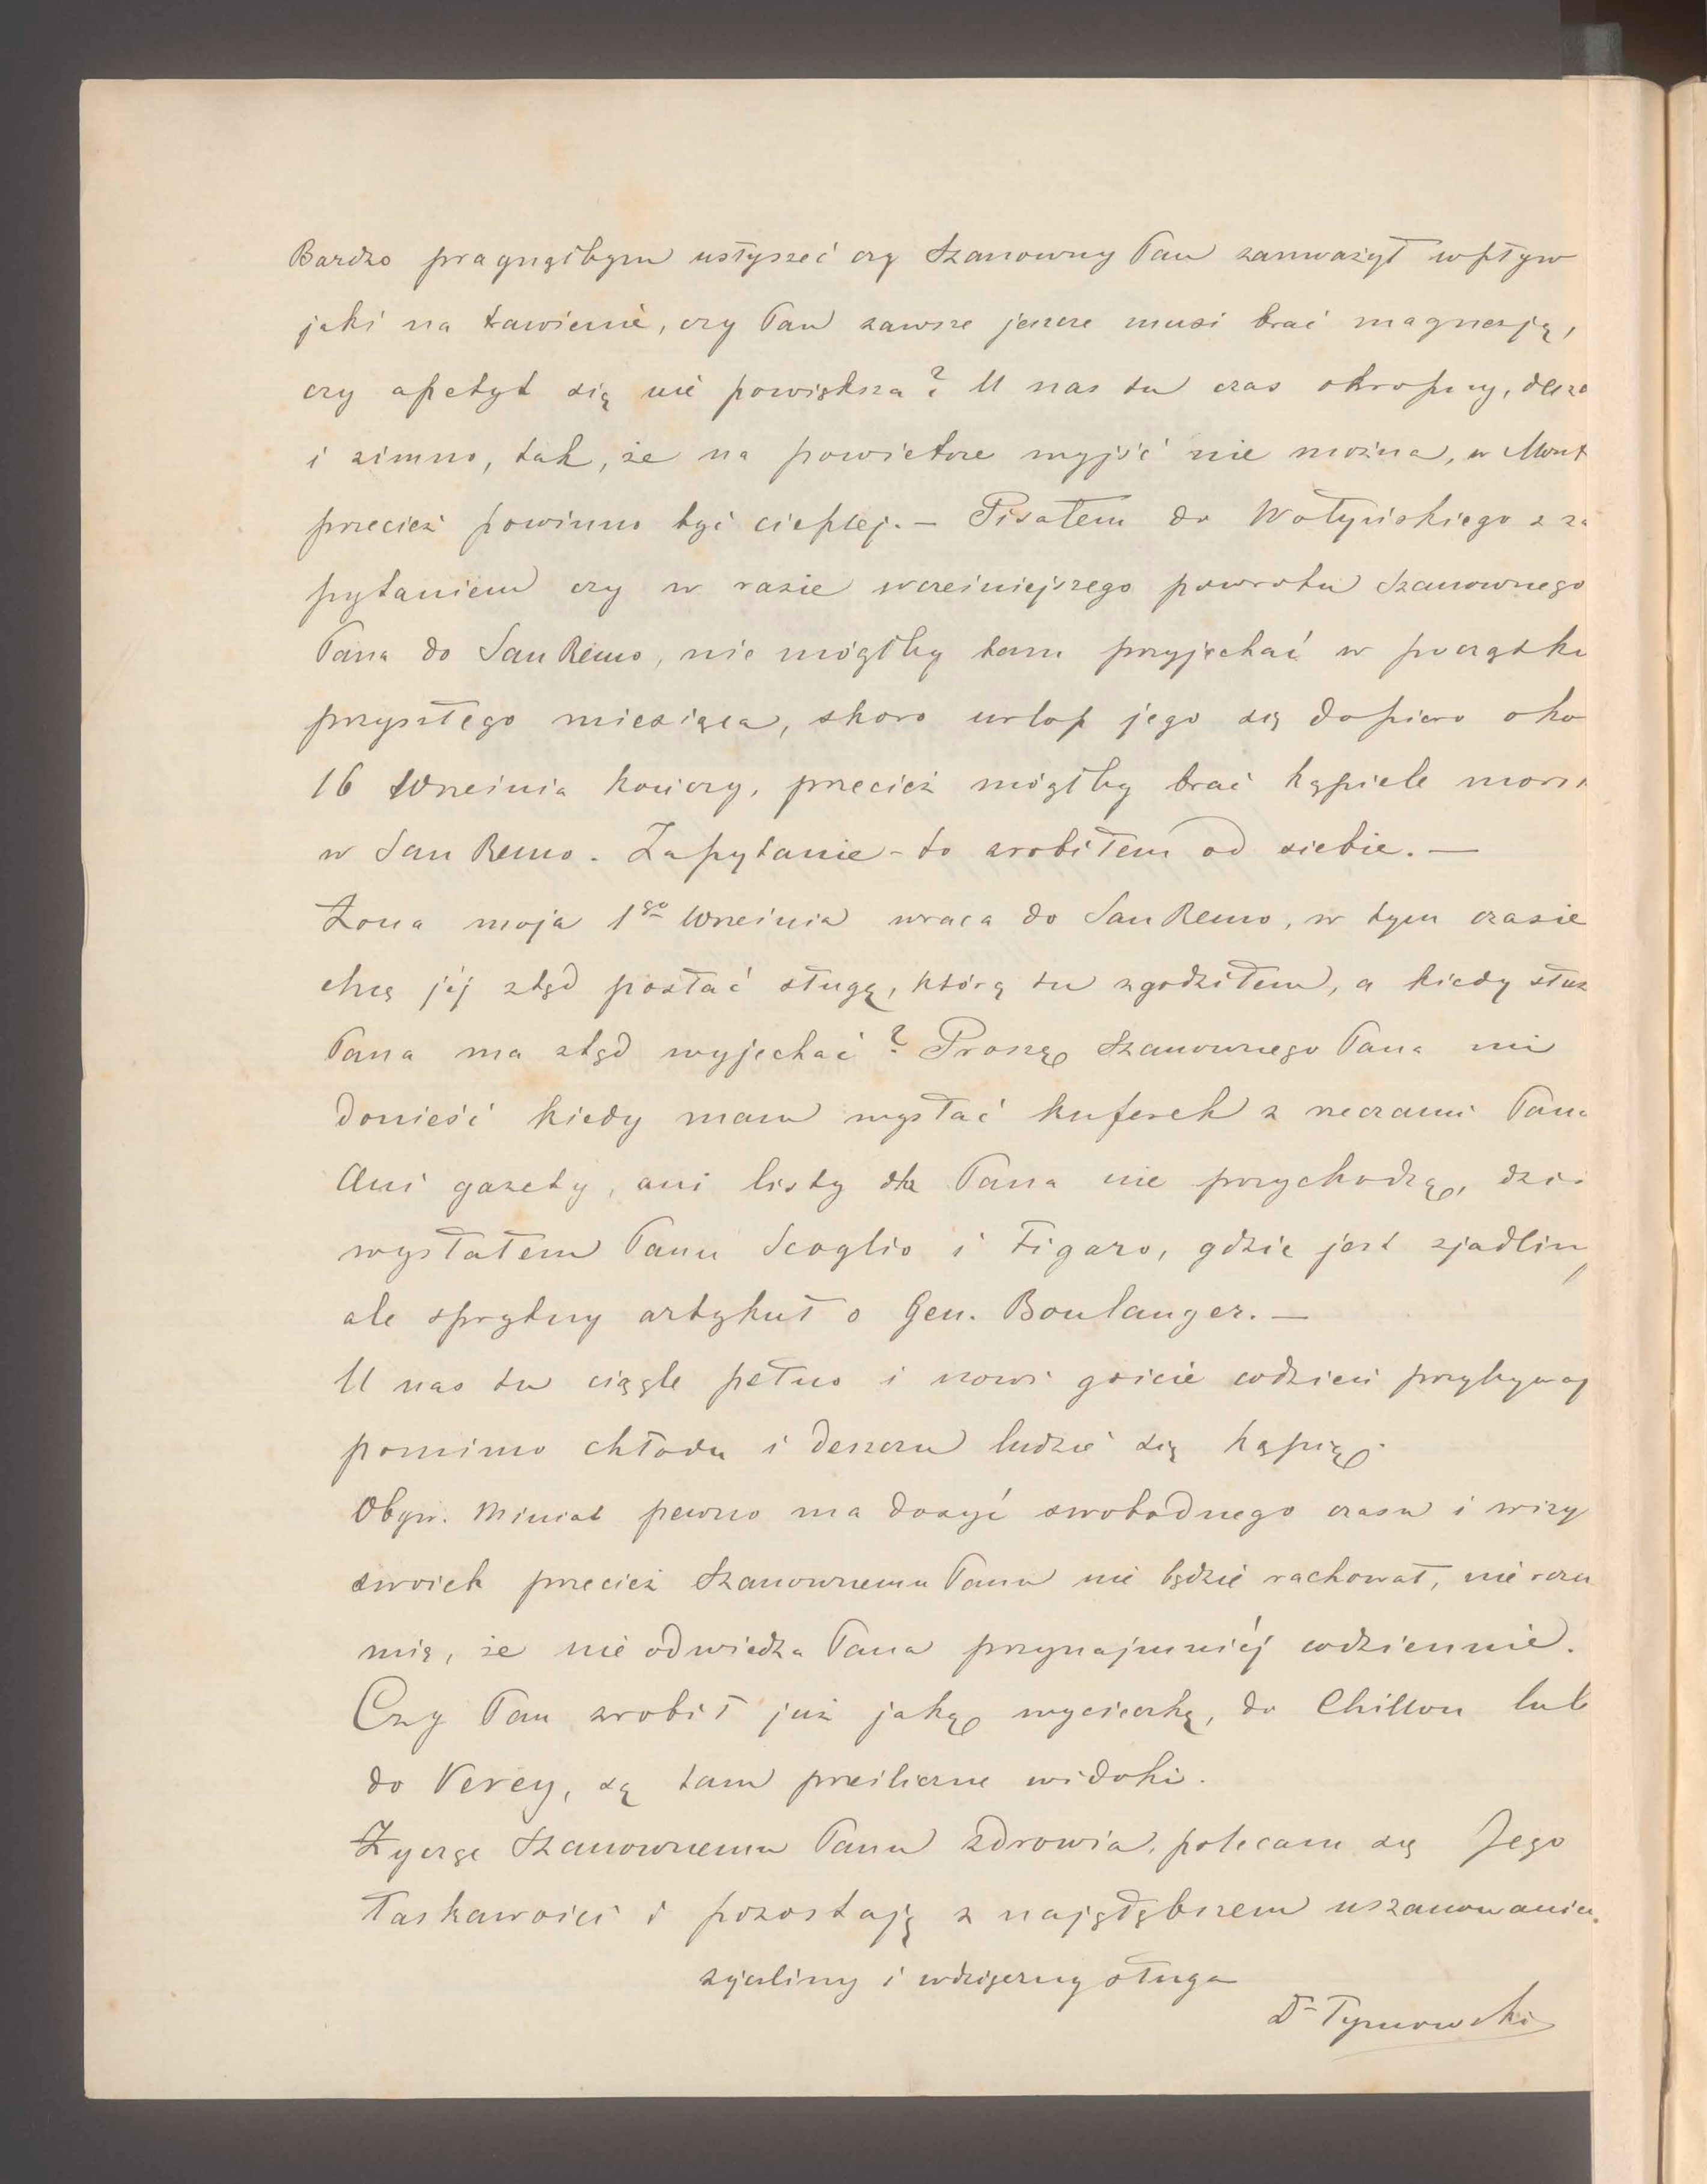 Bardzo pragnąłbym usłyszeć czy Szanowny Pan zauważył wpływ
jaki na trawienie, czy Pan zawsze jeszcze musi brać magnezją,
czy apetyt się nie powiększa? U nas tu czas okropny, deszc
i zimno, tak, że na powietrze wyjść nie można, w Mont
przecież powinno być cieplej. — Pisałem do Wołyńskiego z za
pytaniem czy w razie wcześniejszego powrotu Szanownego
Pana do San Remo, nie mógłby tam przyjechać w początku
przyszłego miesiąca, skoro urlop jego się dopiero oko
16 Września kończy, przecież mógłby brać kąpiele mors
w San Remo. Zapytanie-to zrobiłem od siebie. —
Żona moja 1go Września wraca do San Remo, w tym czasie
chcę jéj ztąd posłać sługę, którą tu zgodziłem, a kiedy służ
Pana ma ztąd wyjechać? Proszę Szanownego Pana mi
donieść kiedy mam wysłać kuferek z rzeczami Pana
Ani gazety, ani listy dla Pana nie przychodzą, dziś
wysłałem Panu Scoglio i Figaro, gdzie jest zjadliwy
ale sprytny artykuł o Gen. Boulanger. —
U nas tu ciągle pełno i nowi goście codzień przybywaj
pomimo chłodu i deszczu ludzie się kąpią.
Obyw. Miniat pewno ma dosyć swobodnego czasu i wizy
swoich przecież Szanownemu Panu nie będzie rachował, nie rozu
mię, że nie odwiedza Pana przynajmniéj codziennie.
Czy Pan zrobił już jaką wycieczkę, do Chillon lub
do Vevey, są tam prześliczne widoki.
Życzę Szanownemu Panu zdrowia, polecam się Jego
łaskawości i pozostaję z najgłębszem uszanowaniem
życzliwy i wdzięczny sługa
Dr Tymowski